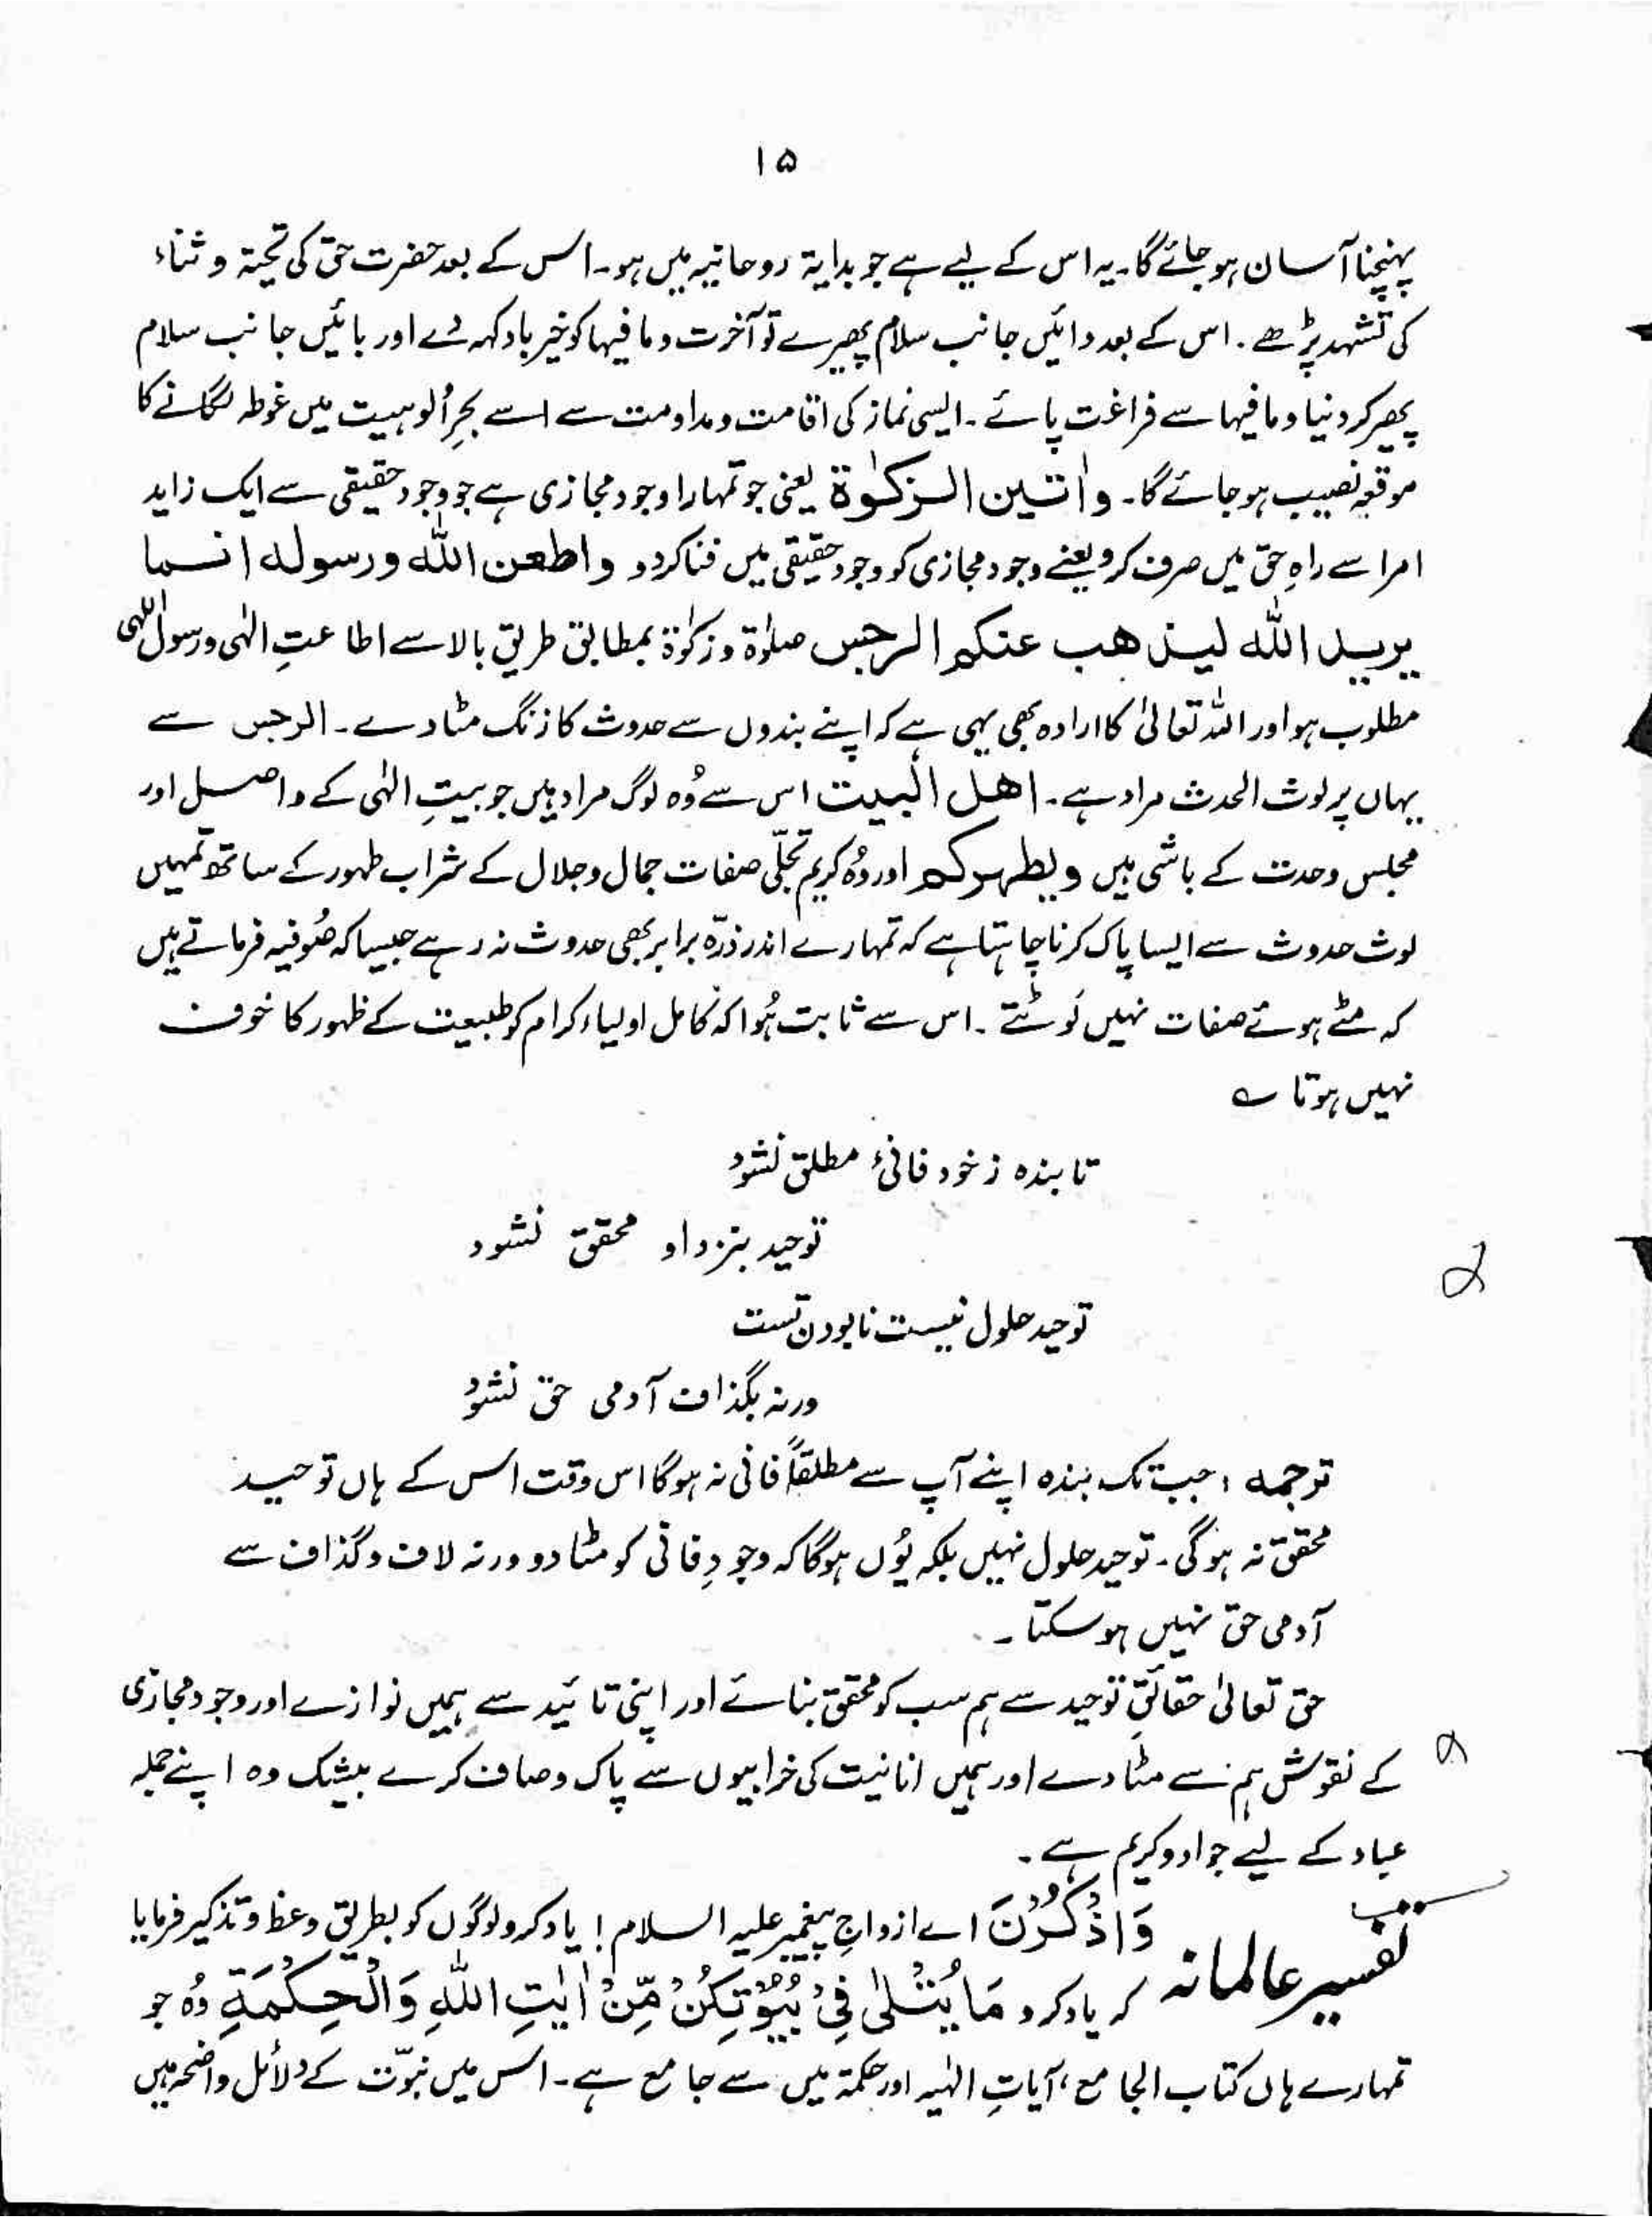 ۱۵
پہنچنا آسان ہو جائے گا۔ یہ اس کے لیے ہے جو بدایۃ روحانیہ میں ہو۔ اس کے بعد حضرت حق کی تحیۃ و ثناء
کی تشہد پڑھے۔ اس کے بعد دائیں جانب سلام پھیرے تو آخرت و ما فیہا کو خیر باد کہہ دے اور بائیں جانب سلام
پھیر کر دنیا و ما فیہا سے فراغت پائے۔ ایسی نماز کی اقامت و مداومت سے اسے بحرِ اُلوہیت میں غوطہ لگانے کا
موقعہ نصیب ہو جائے گا۔ واٰتین الزکوٰۃ یعنی جو تمہارا وجود مجازی ہے جو وجود حقیقی سے ایک زاید
امر اسے راہِ حق میں صرف کرو یعنے وجود مجازی کو وجود حقیقی میں فنا کر دو واطعن اللّٰہ ورسولہ انما
یرید اللّٰہ لیذھب عنکم الرجس صلوٰۃ و زکوٰۃ بمطابق طریق بالا سے اطاعتِ الٰہی و رسول اللہی
مطلوب ہو اور اللہ تعالیٰ کا ارادہ بھی یہی ہے کہ اپنے بندوں سے حدوث کا زنگ مٹا دے۔ الرجس سے
یہاں پر لوث الحدث مراد ہے۔ اھل البیت اس سے وُہ لوگ مراد ہیں جو بیتِ الٰہی کے واصل اور
مجلس وحدت کے باشی ہیں ویطہرکم اور وُہ کریم تجلّی صفات جمال و جلال کے شراب طہور کے ساتھ تمہیں
لوث حدوث سے ایسا پاک کرنا چاہتا ہے کہ تمہارے اندر ذرّہ برابر بھی حدوث نہ رہے جیسا کہ صُوفیہ فرماتے ہیں
کہ مٹے ہوئے صفات نہیں لَوٹتے۔ اس سے ثابت ہُوا کہ کامل اولیاء کرام کو طبیعت کے ظہور کا خوف
نہیں ہوتا ؎
تا بندہ ز خود فانئ مطلق نشود
توحید بنزد او محقق نشود
توحید حلول نیست نابودن تست
ورنہ بگذاف آدمی حق نشود
ترجمہ : جب تک بندہ اپنے آپ سے مطلقاً فانی نہ ہوگا اس وقت اس کے ہاں توحید
محقق نہ ہوگی۔ توحید حلول نہیں بلکہ یُوں ہوگا کہ وجودِ فانی کو مٹا دو ورنہ لاف و گذاف سے
آدمی حق نہیں ہو سکتا۔
حق تعالیٰ حقائقِ توحید سے ہم سب کو محقق بنائے اور اپنی تائید سے ہمیں نوازے اور وجود مجازی
کے نقوش ہم سے مٹا دے اور ہمیں انانیت کی خرابیوں سے پاک و صاف کرے بیشک وہ اپنے جملہ
عباد کے لیے جواد و کریم ہے۔
تفسیر عالمانہ
وَاذْكُرْنَ اے ازواجِ پیغمبر علیہ السلام! یاد کرو لوگوں کو بطریق وعظ و تذکیر فرمایا
کہ یاد کرو مَا یُتْلٰی فِیْ بُیُوْتِكُنَّ مِنْ اٰیٰتِ اللّٰہِ وَالْحِكْمَۃِ وُہ جو
تمہارے ہاں کتاب الجامع، آیاتِ الٰہیہ اور حکمۃ میں سے جامع ہے۔ اس میں نبوّت کے دلائل واضحہ ہیں